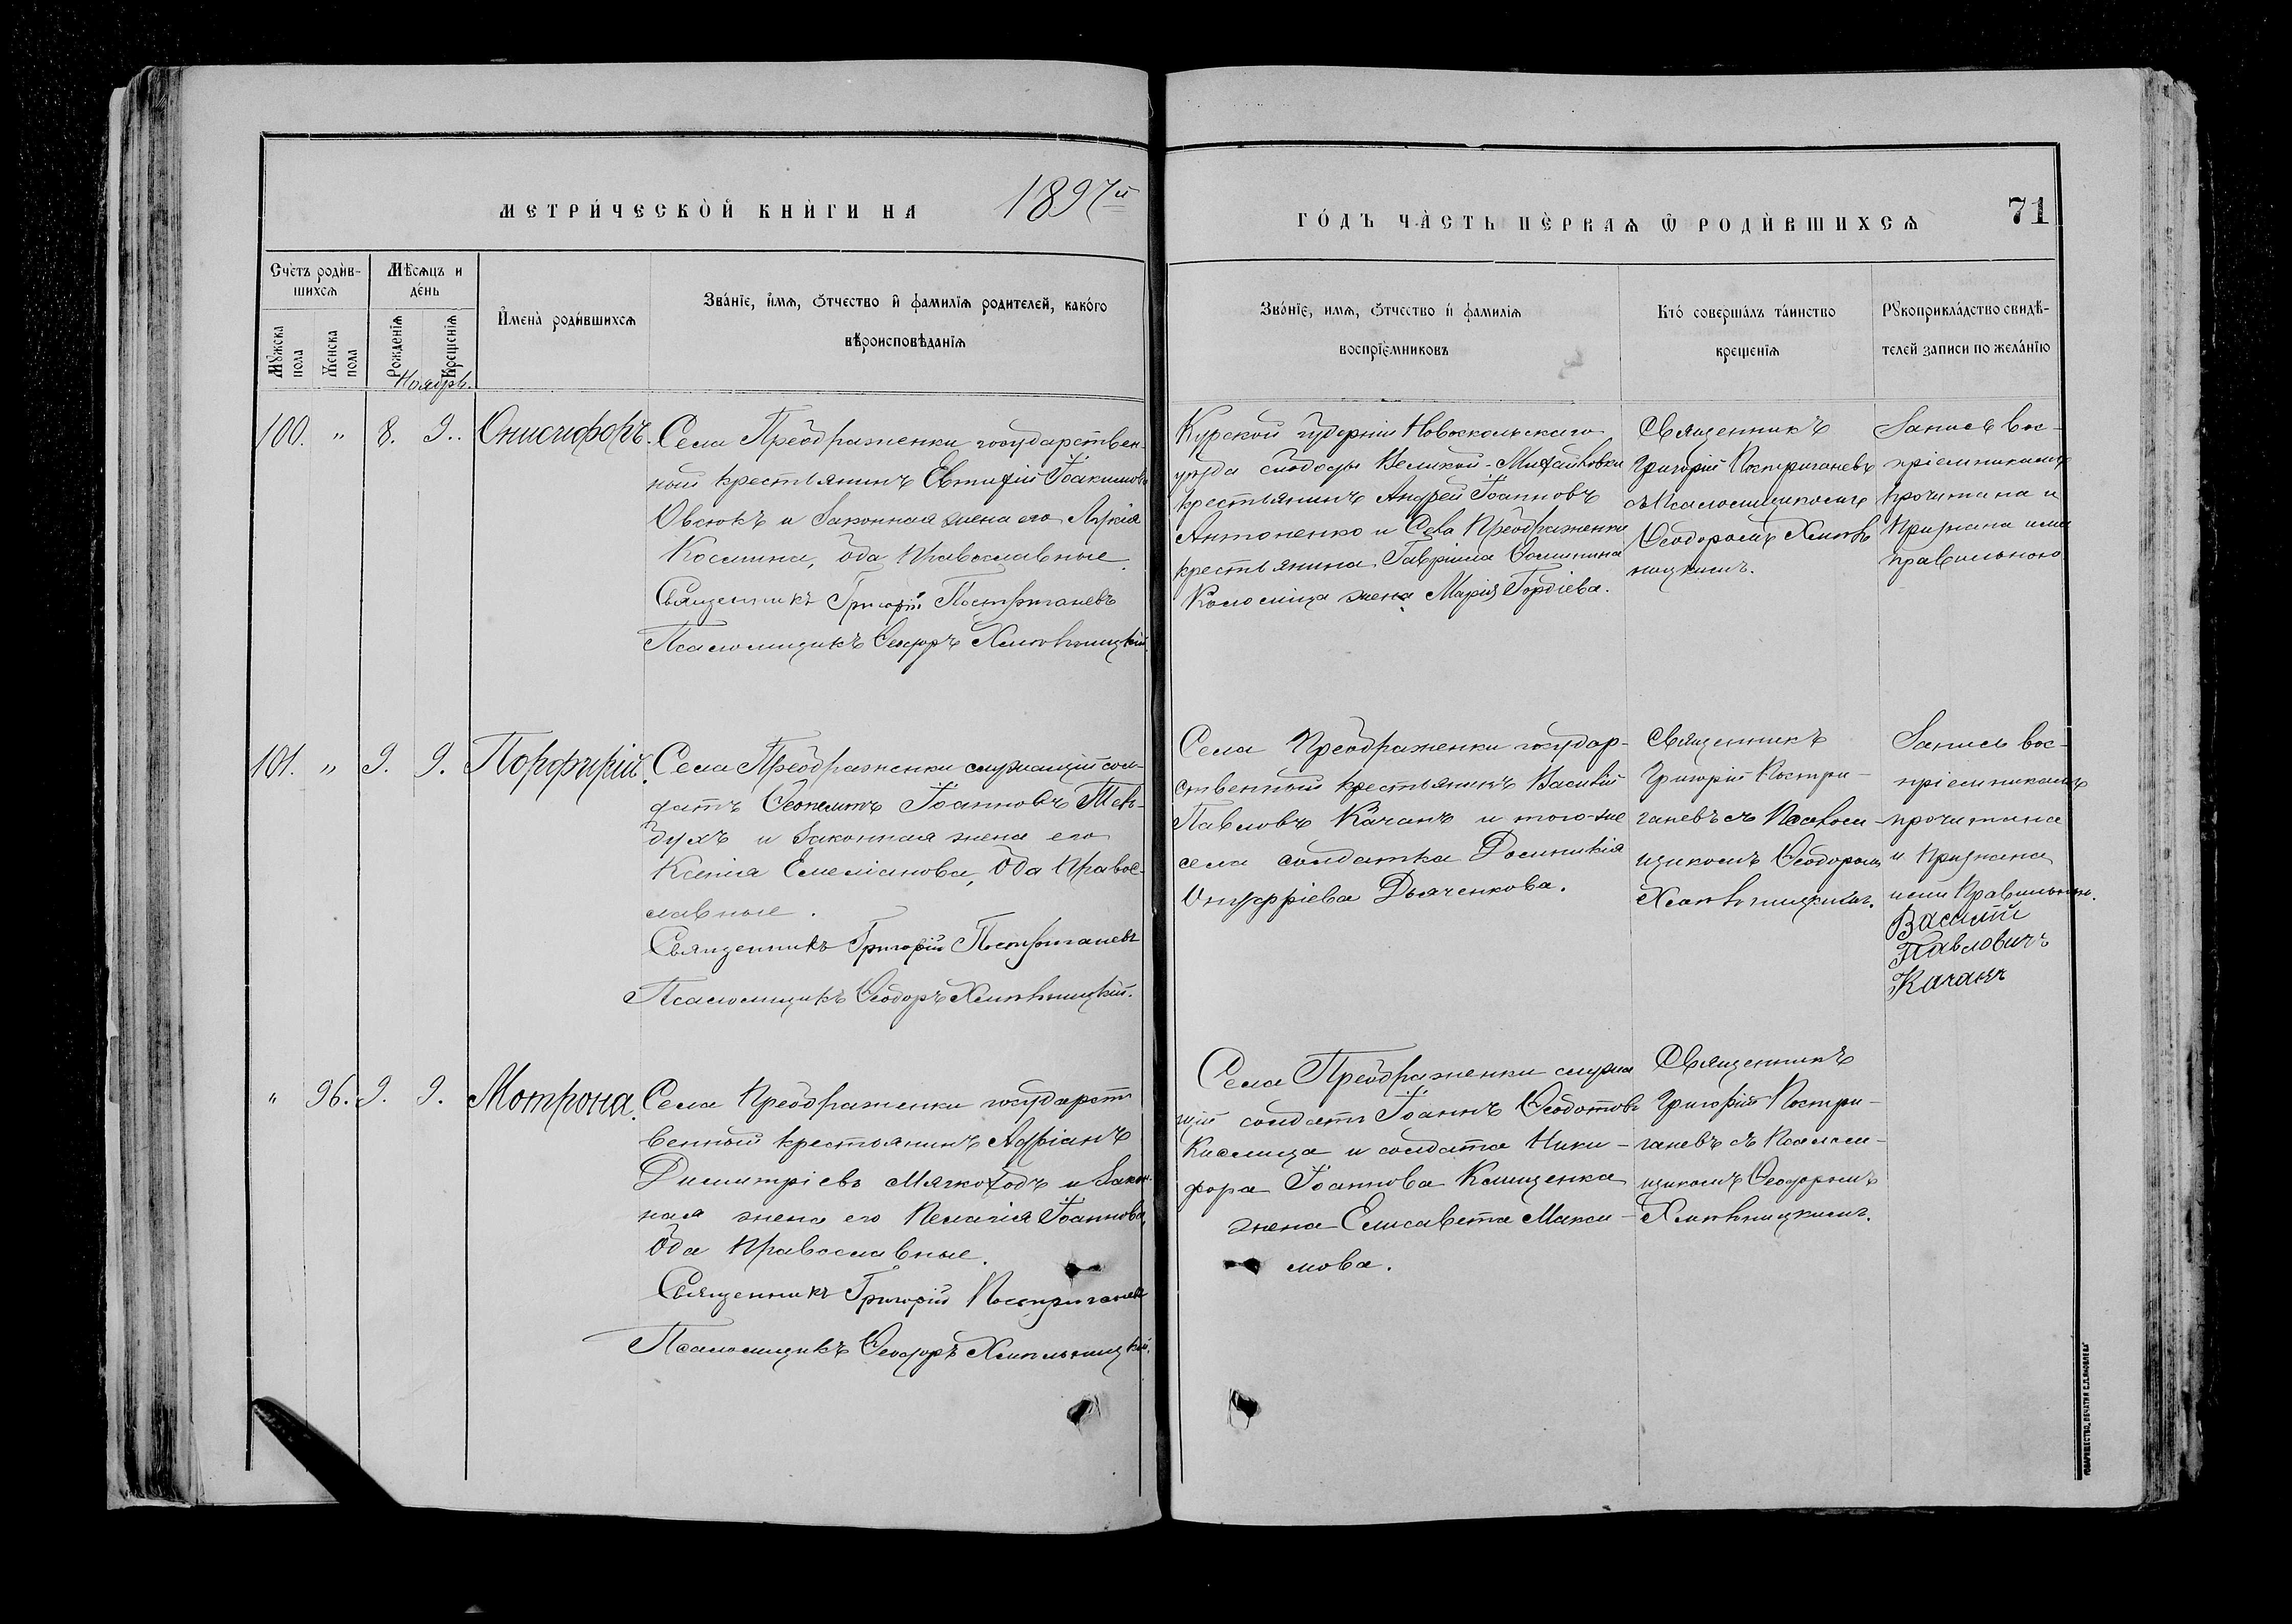 МЕТРИ́ЧЕСКОЙ КНИ́ГИ НА 1897й
ГО́ДЪ ЧА́СТЬ ПЕ́РВАѦ Ѿ РОДИ́ВШИХСѦ
71
Сче́тъ роди́в-
шихсѧ
Мѣ́сѧцъ и
де́нь
Мꙋ́жска
пола
Же́нска
пола
Рожде́нїѧ
Креще́нїѧ
И҆мена̀ роди́вшихсѧ
Зва́нїе, и҆́мѧ, ѻ҆́тчество и҆ фамилїѧ родителей, како́го
вѣроисповѣданїѧ
Зва́нїе, имѧ, ѻ҆́тчество и҆ фамилїѧ
воспрїемниковъ
Кто́ соверша́лъ та́инство
крещенїѧ
Рꙋкоприкла́дство свидѣ́-
телей записи по жела́нїю
Ноябрь.
100. " 8. 9. Онисифоръ.
Села Преображенки государствен-
ный крестьянинъ Евтихій Іоакимовъ
Овсюкъ и законная жена его Лукія
Космина, оба православные.
Священникъ Григорій Постригачевъ
Псаломщикъ Ѳеодоръ Хмѣльницкій.
Курской губерніи Новоскольскаго
уѣзда слободы Великой-Михайловки
крестьянинъ Андрей Іоанновъ
Антоненко и села Преображенки
крестьянина Гавріила
Коломійца жена Марія Гордіева.
Священникъ
Григорій Постригачевъ
съ Псаломщикомъ
Ѳеодоромъ Хмѣль
ницкимъ.
Запись вос-
пріемникамъ
прочитана и
признана ими
правильною
101. " 9. 9. Порфирій.
Села Преображенки служащій сол-
датъ Ѳеопемптъ Іоанновъ
и законная жена его
Ксенія Емеліанова, оба правос-
лавные.
Священникъ Григорій Постригачевъ
Псаломщикъ Ѳеодоръ Хмѣльницкій.
Села Преображенки государ-
ственный крестьянинъ Василій
Павловъ Качанъ и того-же
села солдатка Домникія
Онуфріева Дьяченкова.
Священникъ
Григорій Постри-
гачевъ съ Псалом-
щикомъ Ѳеодоромъ
Хмѣльницкимъ.
Запись вос-
пріемникамъ
прочитана
и признана
ими правильною.
Василій
Павловичъ
Качанъ
" 96. 9. 9. Мотрона.
Села Преображенки государст
венный крестьянинъ Адріанъ
Димитріевъ Мягкоходъ и закон-
ная жена его Пелагія Іоаннова,
Оба православные.
Священникъ Григорій Постригачевъ
Псаломщикъ Ѳеодоръ Хмѣльницкій.
Села Преображенки служа
щій солдатъ Іоаннъ Ѳеодотовъ
Кислица и солдата Ники-
фора Іоаннова Клищенка
жена Елисавета Макси-
мова.
Священникъ
Григорій Постри-
гачевъ съ Псалом-
щикомъ Ѳеодоромъ
Хмѣльницкимъ.
ТОВАРИЩЕСТВО „ПЕЧАТНЯ С.П.ЯКОВЛЕВА"